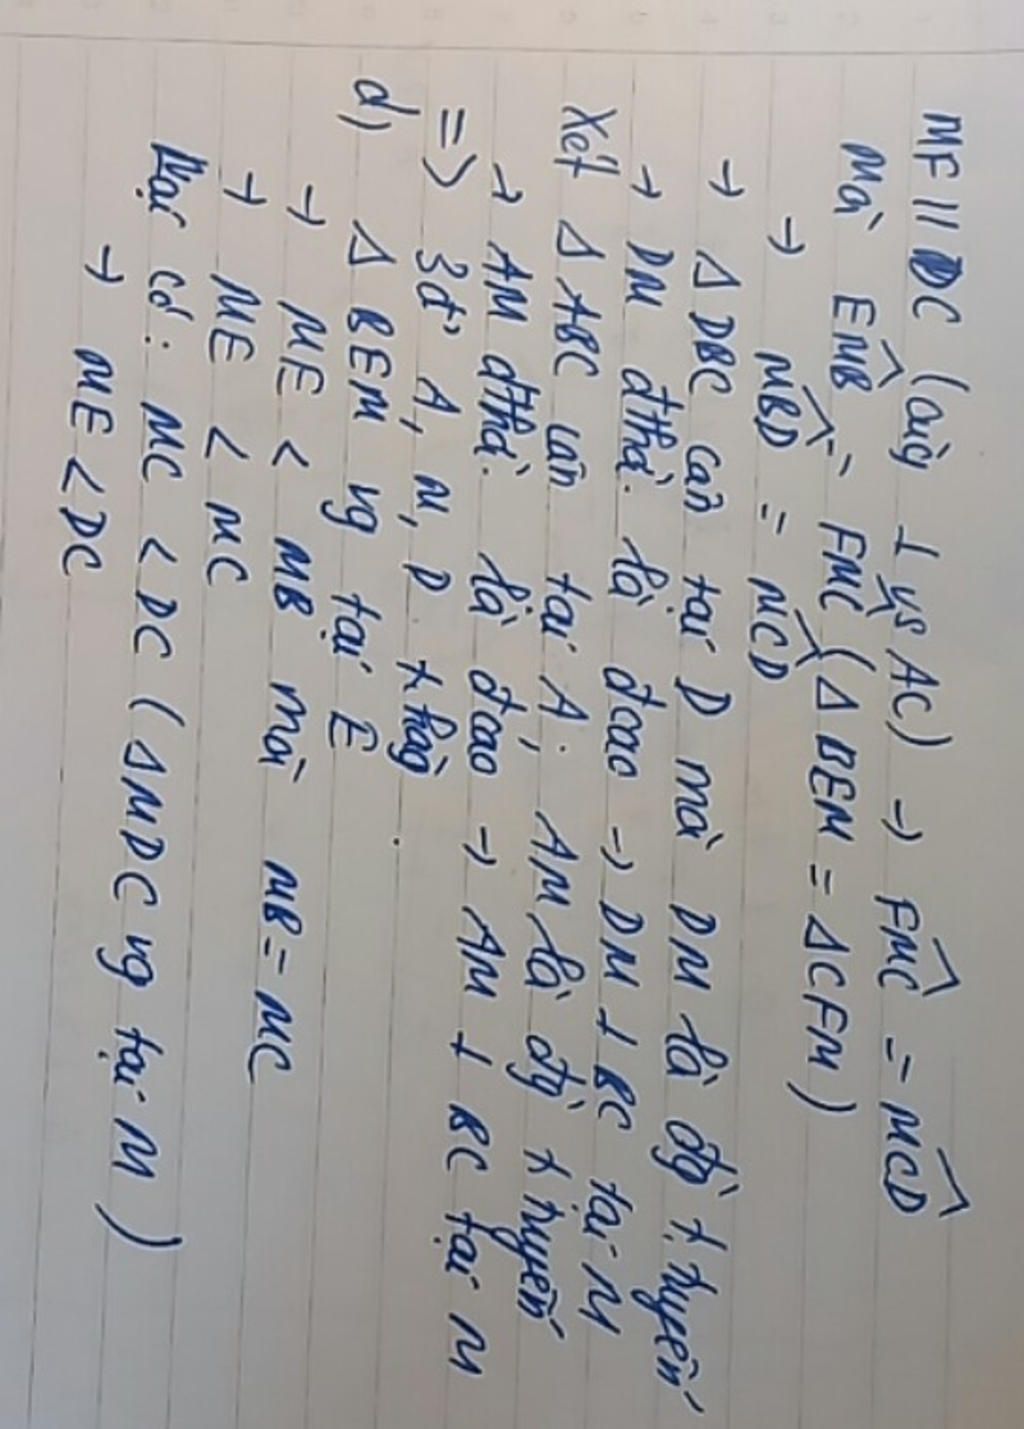 MF // DC (cùng ⊥ vs AC) → FMC = MCD
mà EMB = FMC (Δ BEM = Δ CFM)
→ MBD = MCD
→ Δ DBC cân tại D mà DM là đg` t.tuyến
→ DM đthời là đcao → DM ⊥ BC tại M
Xét Δ ABC cân tại A; AM là đg` t.tuyến
→ AM đthời là đcao → AM ⊥ BC tại M
=> 3đ' A, M, D thẳg
d) Δ BEM vg tại E
→ ME < MB mà MB = MC
→ ME < MC
Mặc có: MC < DC (Δ MDC vg tại M)
→ ME < DC